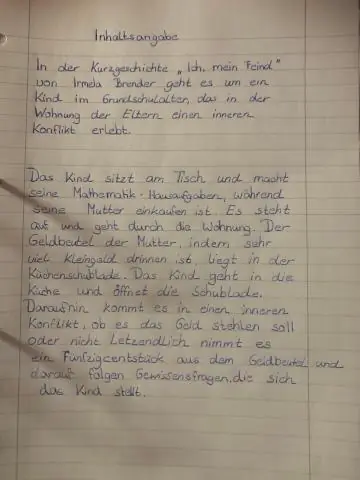 Inhaltsangabe
In der Kurzgeschichte „Ich, mein Feind"
von Irmela Brender geht es um ein
Kind im Grundschulalter, das in der
Wohnung der Eltern einen inneren
Konflikt erlebt.
Das Kind sitzt am Tisch und macht
seine Mathematik-Hausaufgaben, während
seine Mutter einkaufen ist. Es steht
auf und geht durch die Wohnung. Der
Geldbeutel der Mutter, indem sehr
viel Kleingold drinnen ist, liegt in der
Küchenschublade. Das Kind geht in die
Küche und öffnet die Schublade.
Daraufhin kommt es in einen inneren
Konflikt, ob es das Geld stehlen soll
oder nicht. Letzendlich nimmt es
ein Fünfzigcentstück aus dem Geldbeutel und
darauf folgen Gewissensfragen, die sich
das Kind stellt.